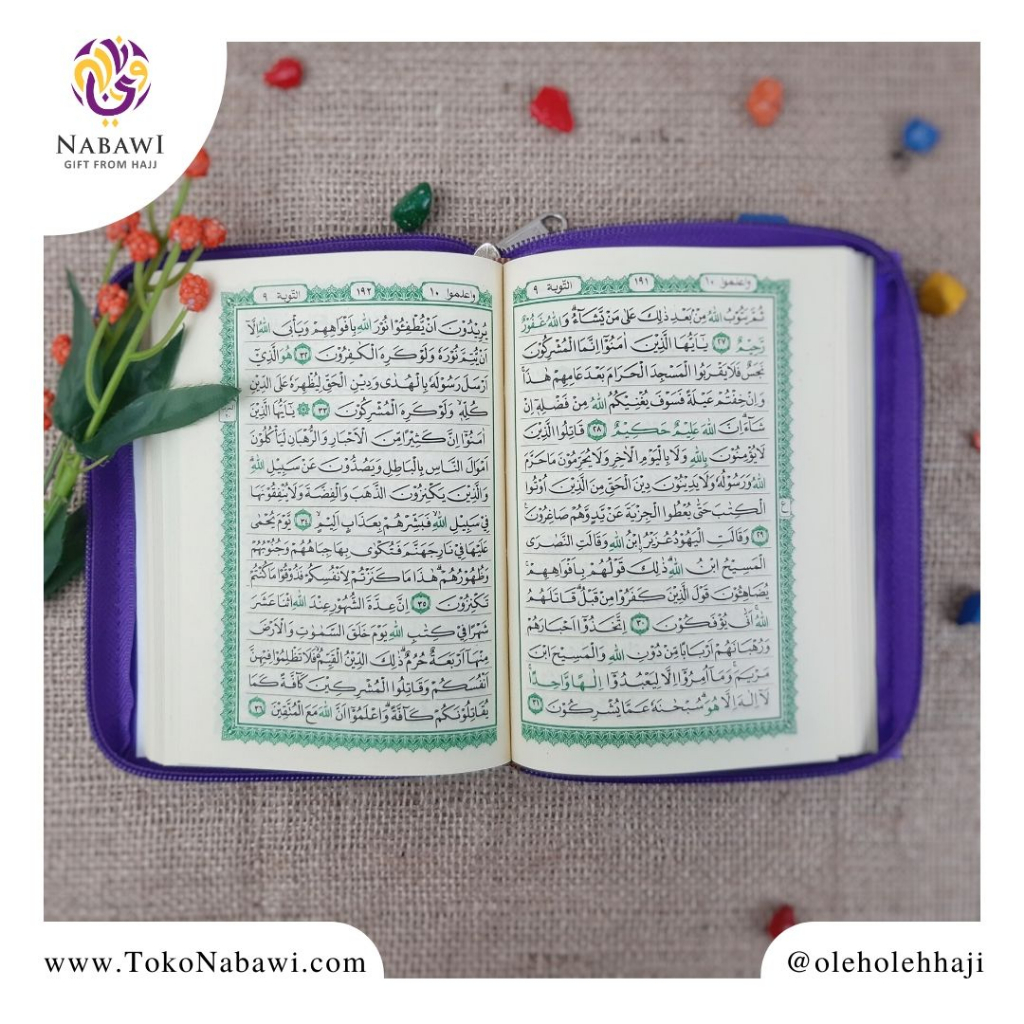 NABAWI
GIFT FROM HAJJ
واعلموا ١٠ ١٩١ التوبة ٩
ثُمَّ يَتُوْبُ اللهُ مِنْ بَعْدِ ذٰلِكَ عَلٰى مَنْ يَّشَاۤءُۗ وَاللهُ غَفُوْرٌ
رَّحِيْمٌ ٢٧ يٰٓاَيُّهَا الَّذِيْنَ اٰمَنُوْٓا اِنَّمَا الْمُشْرِكُوْنَ
نَجَسٌ فَلَا يَقْرَبُوا الْمَسْجِدَ الْحَرَامَ بَعْدَ عَامِهِمْ هٰذَاۚ
وَاِنْ خِفْتُمْ عَيْلَةً فَسَوْفَ يُغْنِيْكُمُ اللهُ مِنْ فَضْلِهٖٓ اِنْ
شَاۤءَۗ اِنَّ اللهَ عَلِيْمٌ حَكِيْمٌ ٢٨ قَاتِلُوا الَّذِيْنَ
لَا يُؤْمِنُوْنَ بِاللهِ وَلَا بِالْيَوْمِ الْاٰخِرِ وَلَا يُحَرِّمُوْنَ مَا حَرَّمَ
اللهُ وَرَسُوْلُهٗ وَلَا يَدِيْنُوْنَ دِيْنَ الْحَقِّ مِنَ الَّذِيْنَ اُوْتُوا
الْكِتٰبَ حَتّٰى يُعْطُوا الْجِزْيَةَ عَنْ يَّدٍ وَّهُمْ صَاغِرُوْنَ
٢٩ وَقَالَتِ الْيَهُوْدُ عُزَيْرُ ابْنُ اللهِ وَقَالَتِ النَّصٰرَى
الْمَسِيْحُ ابْنُ اللهِۗ ذٰلِكَ قَوْلُهُمْ بِاَفْوَاهِهِمْۚ
يُضَاهِـُٔوْنَ قَوْلَ الَّذِيْنَ كَفَرُوْا مِنْ قَبْلُۗ قَاتَلَهُمُ
اللهُۚ اَنّٰى يُؤْفَكُوْنَ ٣٠ اِتَّخَذُوْٓا اَحْبَارَهُمْ
وَرُهْبَانَهُمْ اَرْبَابًا مِّنْ دُوْنِ اللهِ وَالْمَسِيْحَ ابْنَ
مَرْيَمَۚ وَمَآ اُمِرُوْٓا اِلَّا لِيَعْبُدُوْٓا اِلٰهًا وَّاحِدًاۚ
لَآ اِلٰهَ اِلَّا هُوَۗ سُبْحٰنَهٗ عَمَّا يُشْرِكُوْنَ ٣١
واعلموا ١٠ ١٩٢ التوبة ٩
يُرِيْدُوْنَ اَنْ يُّطْفِـُٔوْا نُوْرَ اللهِ بِاَفْوَاهِهِمْ وَيَأْبَى اللهُ اِلَّآ
اَنْ يُّتِمَّ نُوْرَهٗ وَلَوْ كَرِهَ الْكٰفِرُوْنَ ٣٢ هُوَ الَّذِيْٓ
اَرْسَلَ رَسُوْلَهٗ بِالْهُدٰى وَدِيْنِ الْحَقِّ لِيُظْهِرَهٗ عَلَى الدِّيْنِ
كُلِّهٖۙ وَلَوْ كَرِهَ الْمُشْرِكُوْنَ ٣٣ ۞ يٰٓاَيُّهَا الَّذِيْنَ
اٰمَنُوْٓا اِنَّ كَثِيْرًا مِّنَ الْاَحْبَارِ وَالرُّهْبَانِ لَيَأْكُلُوْنَ
اَمْوَالَ النَّاسِ بِالْبَاطِلِ وَيَصُدُّوْنَ عَنْ سَبِيْلِ اللهِۗ
وَالَّذِيْنَ يَكْنِزُوْنَ الذَّهَبَ وَالْفِضَّةَ وَلَا يُنْفِقُوْنَهَا
فِيْ سَبِيْلِ اللهِۙ فَبَشِّرْهُمْ بِعَذَابٍ اَلِيْمٍۙ ٣٤ يَّوْمَ يُحْمٰى
عَلَيْهَا فِيْ نَارِ جَهَنَّمَ فَتُكْوٰى بِهَا جِبَاهُهُمْ وَجُنُوْبُهُمْ
وَظُهُوْرُهُمْۗ هٰذَا مَا كَنَزْتُمْ لِاَنْفُسِكُمْ فَذُوْقُوْا مَا كُنْتُمْ
تَكْنِزُوْنَ ٣٥ اِنَّ عِدَّةَ الشُّهُوْرِ عِنْدَ اللهِ اثْنَا عَشَرَ
شَهْرًا فِيْ كِتٰبِ اللهِ يَوْمَ خَلَقَ السَّمٰوٰتِ وَالْاَرْضَ
مِنْهَآ اَرْبَعَةٌ حُرُمٌۗ ذٰلِكَ الدِّيْنُ الْقَيِّمُ ەۙ فَلَا تَظْلِمُوْا فِيْهِنَّ
اَنْفُسَكُمْ وَقَاتِلُوا الْمُشْرِكِيْنَ كَاۤفَّةً كَمَا
يُقَاتِلُوْنَكُمْ كَاۤفَّةًۗ وَاعْلَمُوْٓا اَنَّ اللهَ مَعَ الْمُتَّقِيْنَ ٣٦
www.TokoNabawi.com
@oleholehhaji